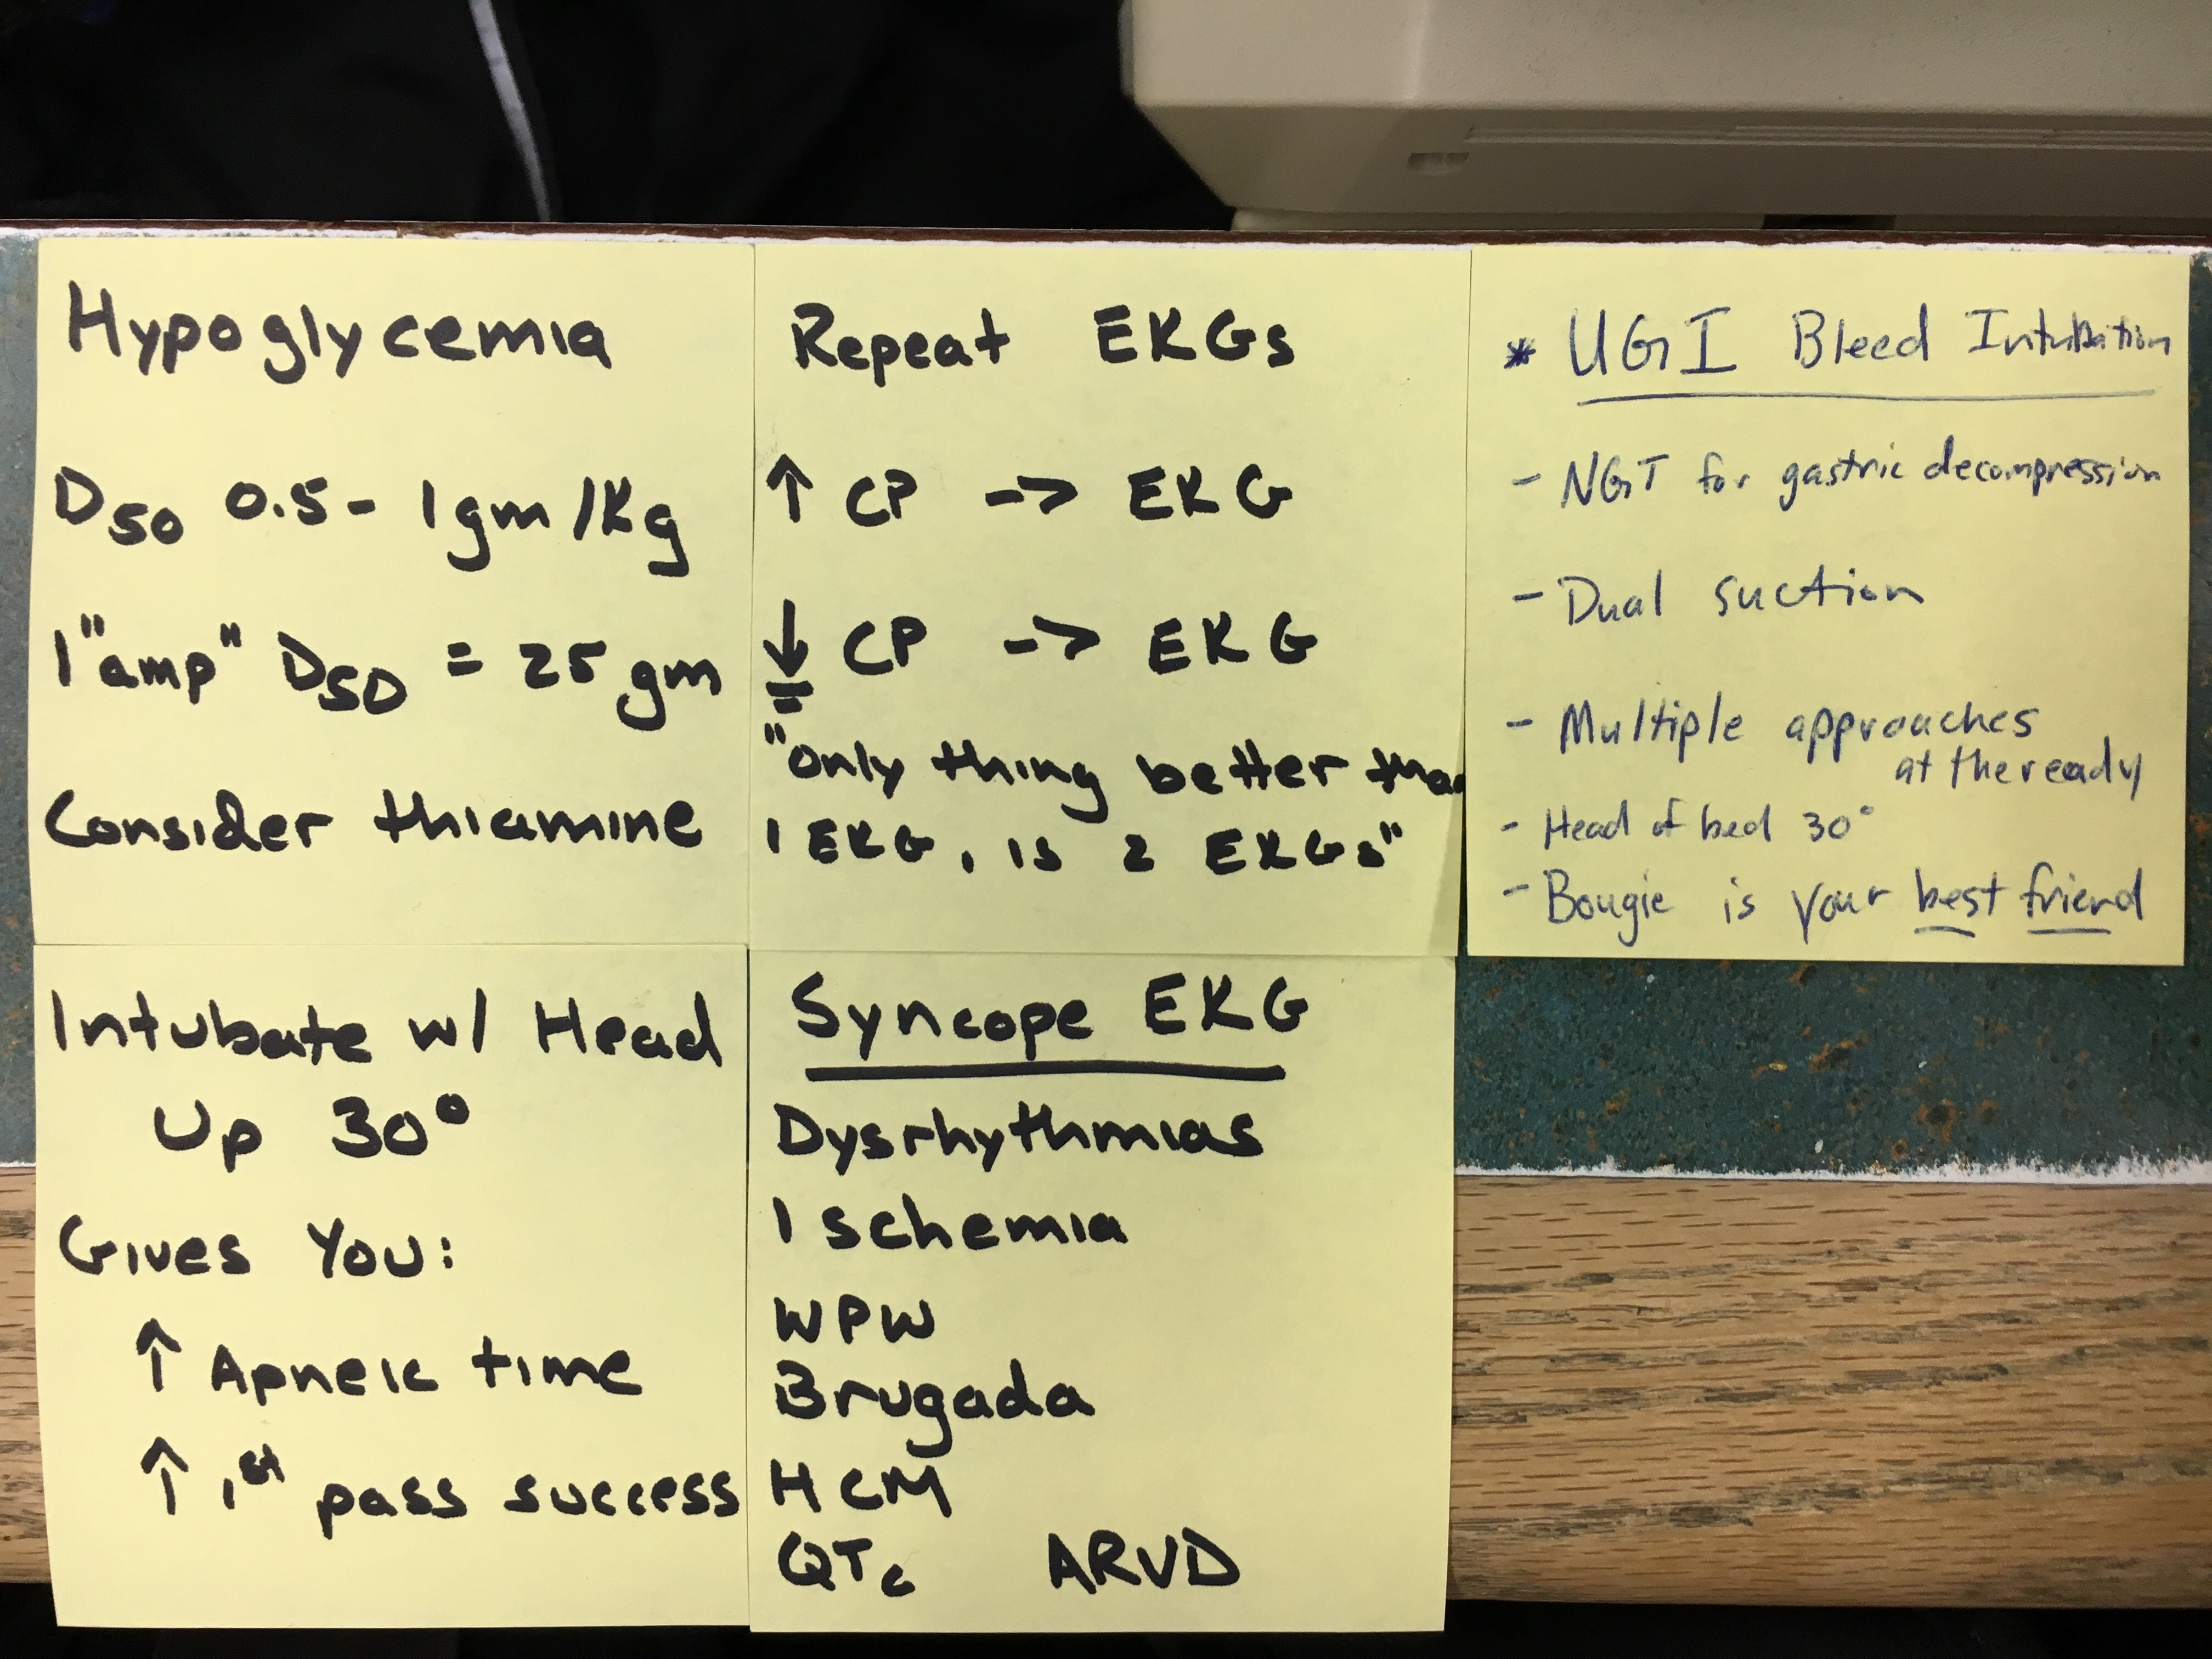 Hypoglycemia
D50 0.5 - 1gm/Kg
1 "amp" D50 = 25 gm
Consider thiamine
Repeat EKGs
↑ CP -> EKG
↓ CP -> EKG
"Only thing better than
1 EKG, is 2 EKGs"
* UGI Bleed Intubation
- NGT for gastric decompression
- Dual suction
- Multiple approaches
at the ready
- Head of bed 30°
- Bougie is your best friend
Intubate w/ Head
Up 30°
Gives You:
↑ Apneic time
↑ 1st pass success
Syncope EKG
Dysrhythmias
Ischemia
WPW
Brugada
HCM
QTc ARVD